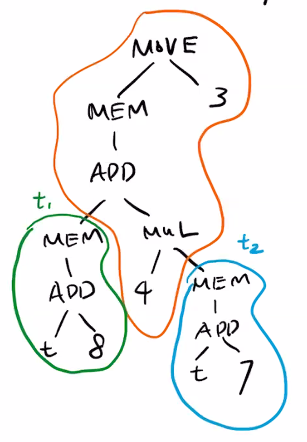 MOVE
MEM 3
ADD
t₁
MEM MUL
t₂
ADD 4 MEM
t 8
ADD
t 7